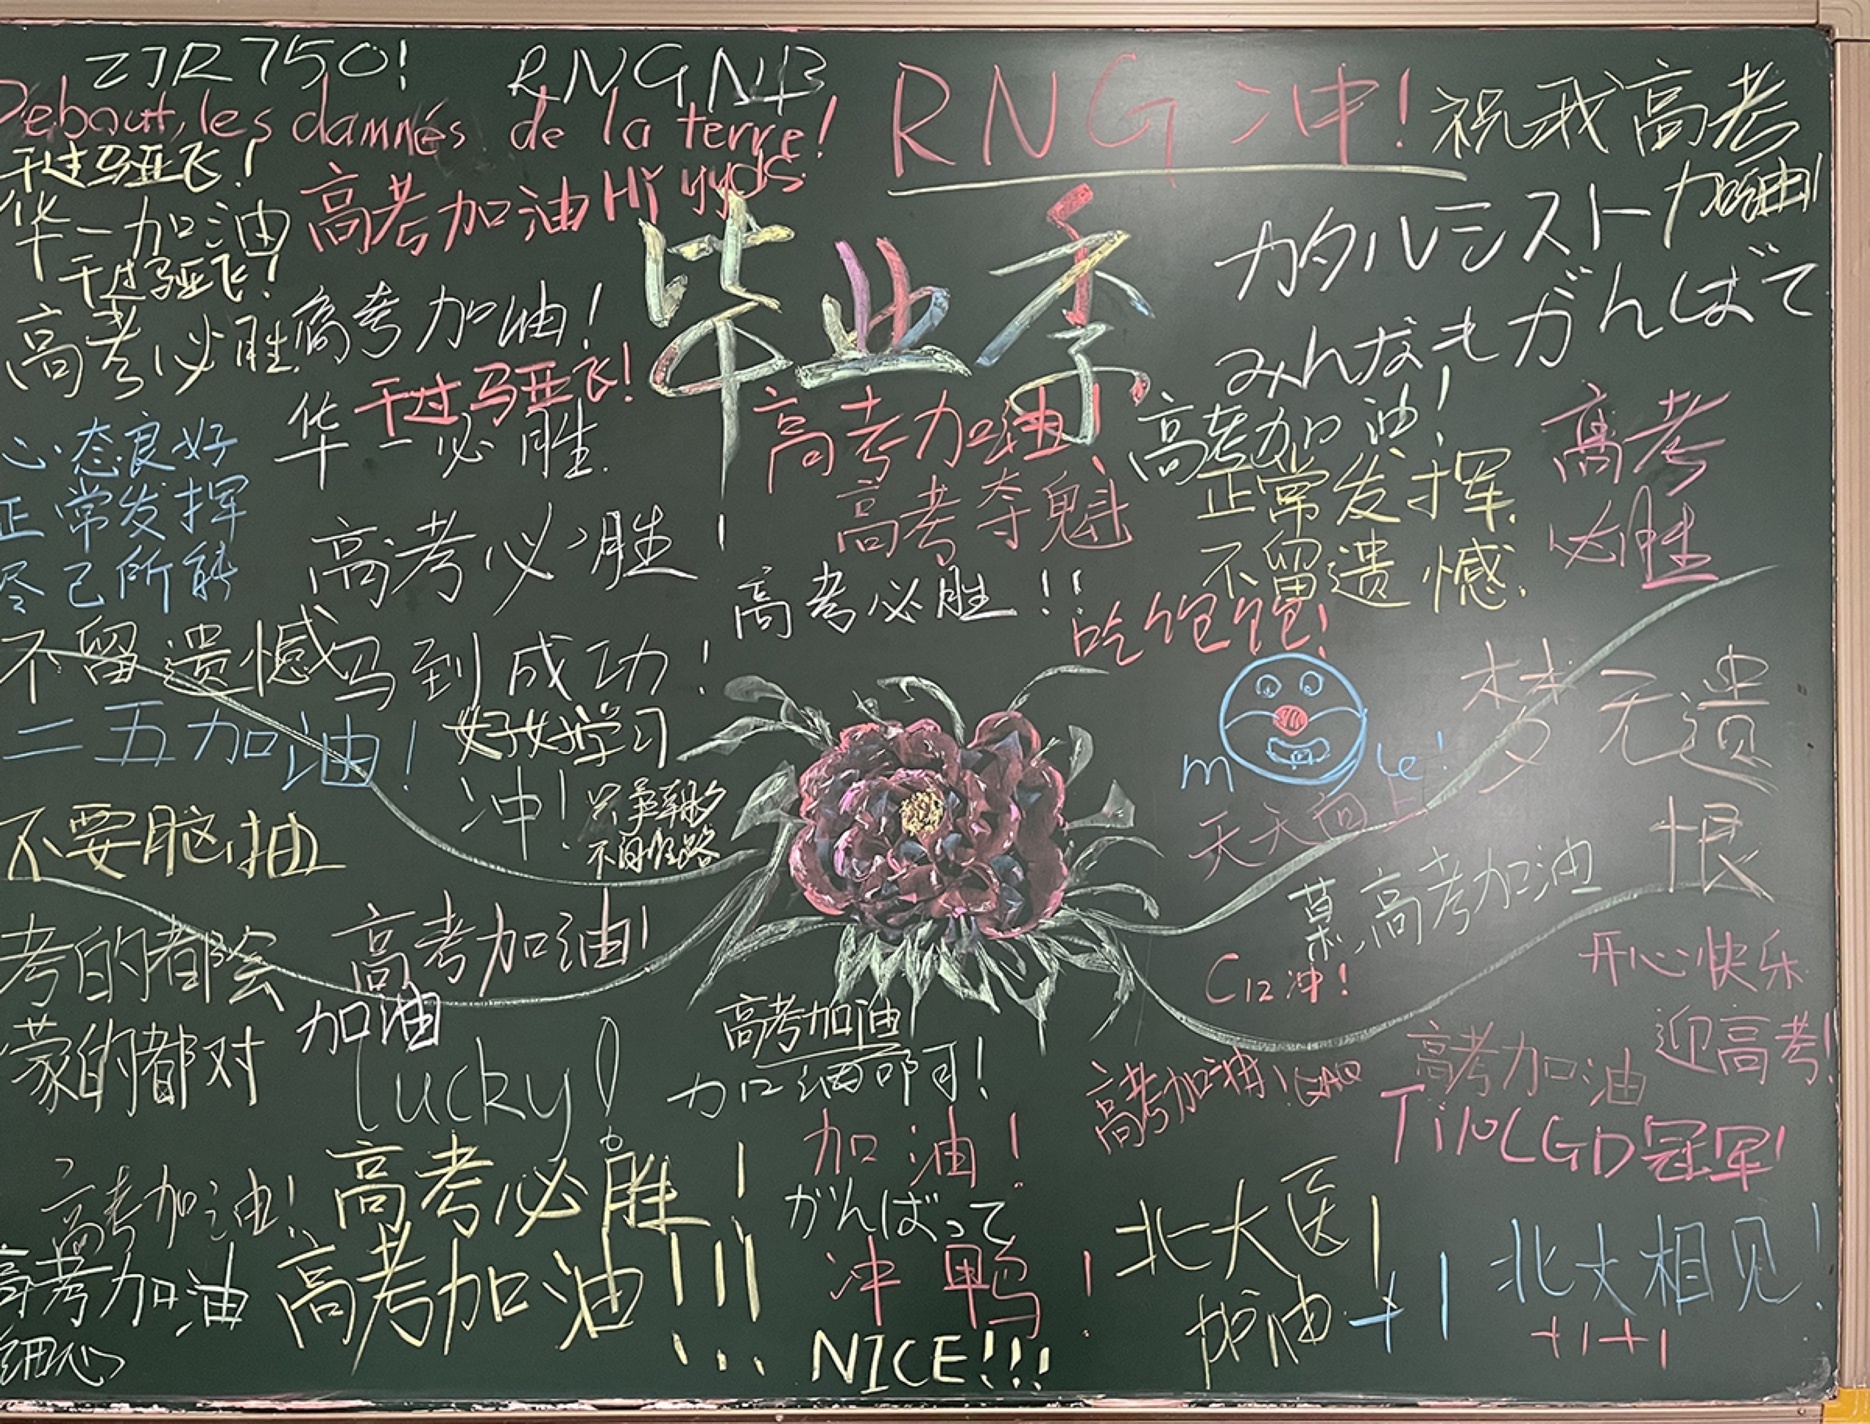 ZJR 750!
RNG NB
Debout, les damnés de la terre!
RNG 冲!
祝我高考
加油!
干过马亚飞!
高考加油 Hi yyds
华一加油
干过马亚飞!
毕业季
カタルシスト
みんなもがんばて
高考必胜
高考加油!
干过马亚飞!
华一必胜.
高考加油!
高考加油!
高考
必胜
心态良好
正常发挥
尽己所能
高考夺魁
正常发挥,
不留遗憾.
高考必胜!
高考必胜!!
吃饱饱!
不留遗憾
马到成功!
二五加油!
好好学习
冲!
只争朝夕
不负韶华
梦无遗
恨
天天向上
不要脑抽
高考加油
考的都会
蒙的都对
高考加油!
加油
C12 冲!
开心快乐
迎高考!
高考加油
加油啊!
lucky!
高考加油! QAQ
高考加油
Ti10LGD冠军!
加油!
高考加油!
高考必胜!
高考加油!!!
がんばって
冲鸭!
NICE!!!
北大医!
加油+1
北大相见!
+1+1
高考加油
细心